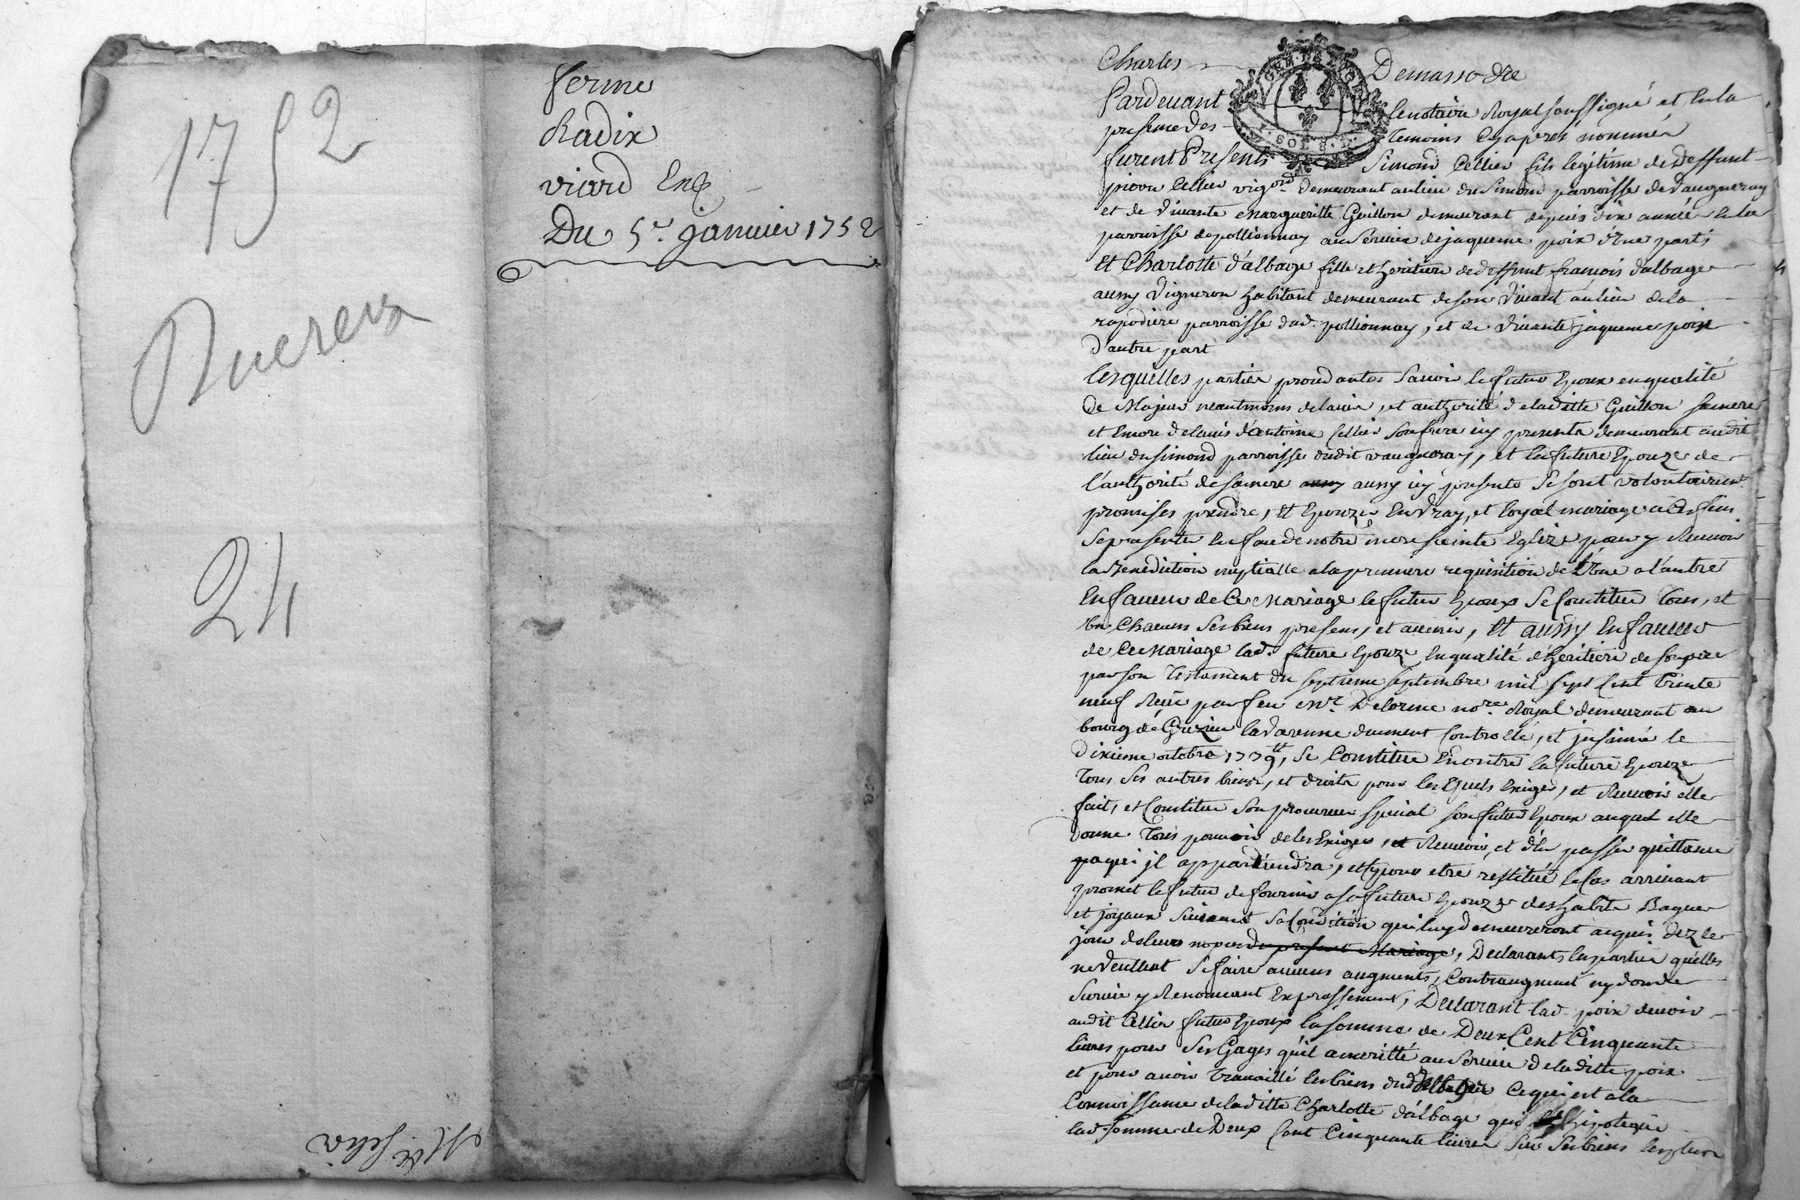 1752
24
ferme
Radix
viard
Du 5e. janvier 1752
Charles Demasso dre
Pardevant le notaire Royal soussigné et en la
presence des temoins cy apres nommés
furent Presents Simond Cellier fils legitime de deffunt
vigon. demeurant au lieu du Simon parroisse de Vaugneray
et de vivante Margueritte Guillon demeurant depuis dix années en la
parroisse de pollionnay au service de jaqueme poix d'Une part
Et Charlotte d'albage fille et heritiere de deffunt francois dalbage
aussy Vigneron habitant demeurant de son vivant au lieu de la
parroisse dud. pollionnay, et de vivante jaqueme poix
d'autre part
lesquelles parties procedantes Savoir le futur Epoux en qualité
de Majeur neantmoins de l'avis, et authorité de laditte Guillon sa mere
et Encore de l'avis d'antoine Cellier son frere icy present demeurant audit
lieu du simond parroisse dudit vaugneray, et la future Epouze de
l'authorité de sa mere aussy icy presente se sont volontairemt.
promises prendre, Et Epouzer En vray, et loyal mariage à ces fins
se presenter En face de notre mere sainte Eglize pour y Recevoir
la Benediction nuptialle a la premiere requisition de l'Une a l'autre
En faveur de Ce Mariage le futur Epoux se Constitue tous, et
Un Chacuns ses biens presens, et avenir, Et aussy En faveur
de Ce Mariage lad. future Epouze en qualité d'heritiere de son pere
par son testament du septieme septembre mil sept Cent trente
neuf Reçu par feu Me. Delorme nore. Royal demeurant au
bourg de Grezieu lavarenne duement Controllé, et insinué le
dixieme octobre 1739, se Constitue Encontre la future Epouze
tous ses autres biens, et droits pour lesquels Exiger, et Recevoir elle
fait, et Constitue son procureur special son futur Epoux auquel elle
donne tous pouvoir de les Exiger, et Recevoir, et d'En passer quittance
a qui il appartiendra, et pour etre restitué le Cas arrivant
promet le futur de fournir a sa future Epouze des habits Bagues
et joyaux suivant sa Condition qui luy demeureront acquis dez le
jour de leurs nopces du present Mariage, Declarants les parties qu'elles
ne veullent se faire aucuns augments, Contraugment ny don de
survie y Renoncant Expressement, Declarant lad. poix devoir
audit Cellier futur Epoux la somme de Deux Cent Cinquante
livres pour ses Gages qu'il a meritté au service de laditte poix
et pour avoir travaillé les biens dud. dalbage Ce qui est a la
Connoissance de laditte Charlotte d'albage qui hipoteque
lad. somme de Deux Cent Cinquante livres sur ses biens